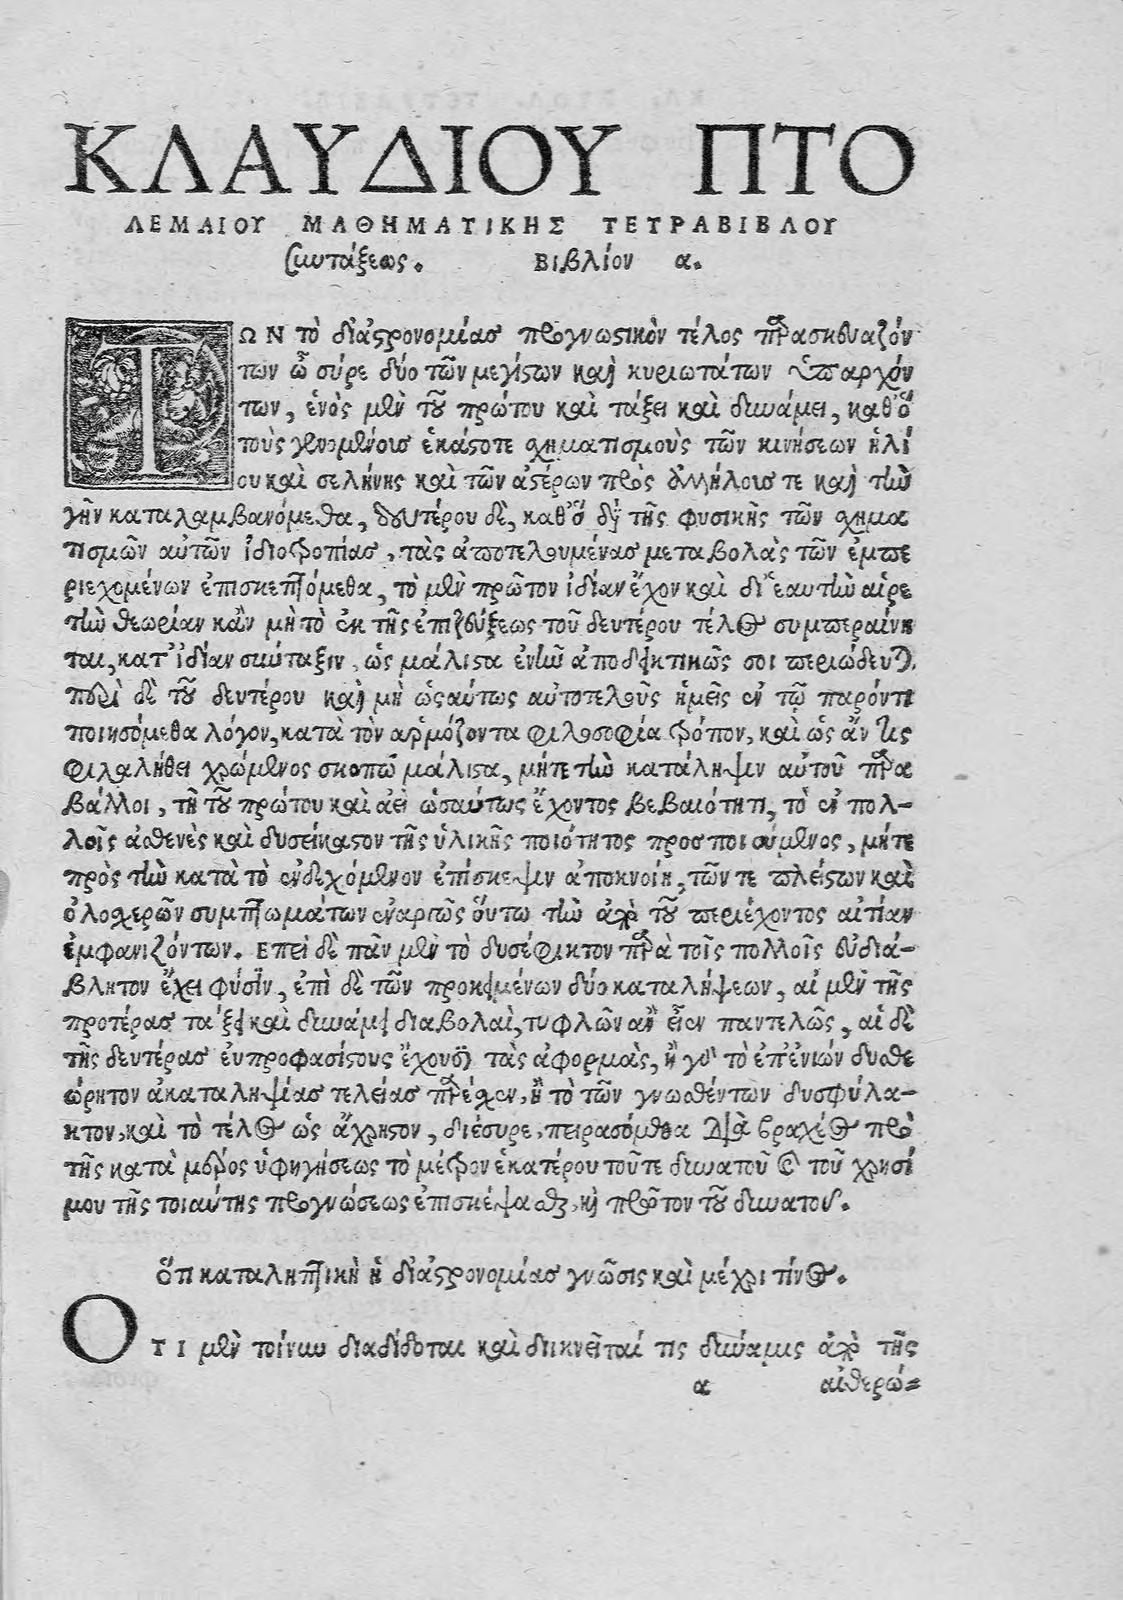 ΚΛΑΥΔΙΟΥ ΠΤΟ
ΛΕΜΑΙΟΥ ΜΑΘΗΜΑΤΙΚΗΣ ΤΕΤΡΑΒΙΒΛΟΥ
Συντάξεως. Βιβλίον α.
ΤΩΝ τὸ δἰ ἀςρονομίας προγνωςικὸν τέλος παρασκευαζόν
των ὦ σύρε δύο τῶν μεγίςων καὶ κυριωτάτων ὑπαρχόν
των, ἑνὸς μὲν τοῦ πρώτου καὶ τάξει καὶ δυνάμει, καθ' ὃ
τοὺς γενομένοις ἑκάςοτε σχηματισμοὺς τῶν κινήσεων ἡλί
ου καὶ σελήνης καὶ τῶν ἀςέρων πρὸς ἀλλήλοις τε καὶ τὴν
γῆν καταλαμβανόμεθα, δευτέρου δὲ, καθ' ὃ δἰ τῆς φυσικῆς τῶν σχημα
τισμῶν αὐτῶν ἰδιοτροπίας, τὰς ἀποτελουμένας μεταβολὰς τῶν ἐμπε
ριεχομένων ἐπισκεπτόμεθα, τὸ μὲν πρῶτον ἰδίαν ἔχον καὶ δι' ἑαυτὴν αἱρε
τὴν θεωρίαν κἂν μὴ τὸ ἐκ τῆς ἐπιζεύξεως τοῦ δευτέρου τέλος συμπεραίνη
ται, κατ' ἰδίαν σύνταξιν, ὡς μάλιςα ἐνῆν ἀποδεικτικῶς σοι περιώδευται.
περὶ δὲ τοῦ δευτέρου καὶ μὴ ὡςαύτως αὐτοτελοῦς ἡμεῖς ἐν τῷ παρόντι
ποιησόμεθα λόγον, κατὰ τὸν ἁρμόζοντα φιλοσοφία τρόπον, καὶ ὡς ἄν τις
φιλαλήθει χρώμενος σκοπῷ μάλιςα, μήτε τὴν κατάληψιν αὐτοῦ παρα
βάλλοι, τῇ τοῦ πρώτου καὶ ἀεὶ ὡσαύτως ἔχοντος βεβαιότητι, τὸ ἐν πολ-
λοῖς ἀσθενὲς καὶ δυσείκαςον τῆς ὑλικῆς ποιότητος προσποιούμενος, μήτε
πρὸς τὴν κατὰ τὸ ἐνδεχόμενον ἐπίσκεψιν ἀποκνοίη, τῶν τε πλείςων καὶ
ὁλοσχερῶν συμπτωμάτων ἐναργῶς οὕτω τὴν ἀπὸ τοῦ περιέχοντος αἰτίαν
ἐμφανιζόντων. Επεὶ δὲ πᾶν μὲν τὸ δυσέφικτον παρὰ τοῖς πολλοῖς εὐδιά-
βλητον ἔχει φύσιν, ἐπὶ δὲ τῶν προκειμένων δύο καταλήψεων, αἱ μὲν τῆς
προτέρας τάξει καὶ δυνάμει διαβολαὶ, τυφλῶν ἂν εἶεν παντελῶς, αἱ δὲ
τῆς δευτέρας εὐπροφασίςους ἔχουσι τὰς ἀφορμὰς, ἢ γὰρ τὸ ἐπ' ἐνίων δυσθε
ώρητον ἀκαταληψίας τελείας παρέσχεν, ἢ τὸ τῶν γνωσθέντων δυσφύλα-
κτον, καὶ τὸ τέλος ὡς ἄχρηςον, διέσυρε, πειρασόμεθα διὰ βραχέος πρὸ
τῆς κατὰ μέρος ὑφηγήσεως τὸ μέτρον ἑκατέρου τοῦτε δυνατοῦ καὶ τοῦ χρησί
μου τῆς τοιαύτης προγνώσεως ἐπισκέψασθαι, καὶ πρῶτον τοῦ δυνατοῦ.
Ὅτι καταληπτικὴ ἡ δἰ ἀςρονομίας γνῶσις καὶ μέχρι τίνος.
ΟΤΙ μὲν τοίνυν διαδίδοται καὶ διικνεῖταί τις δύναμις ἀπὸ τῆς
α αἰθερώ=